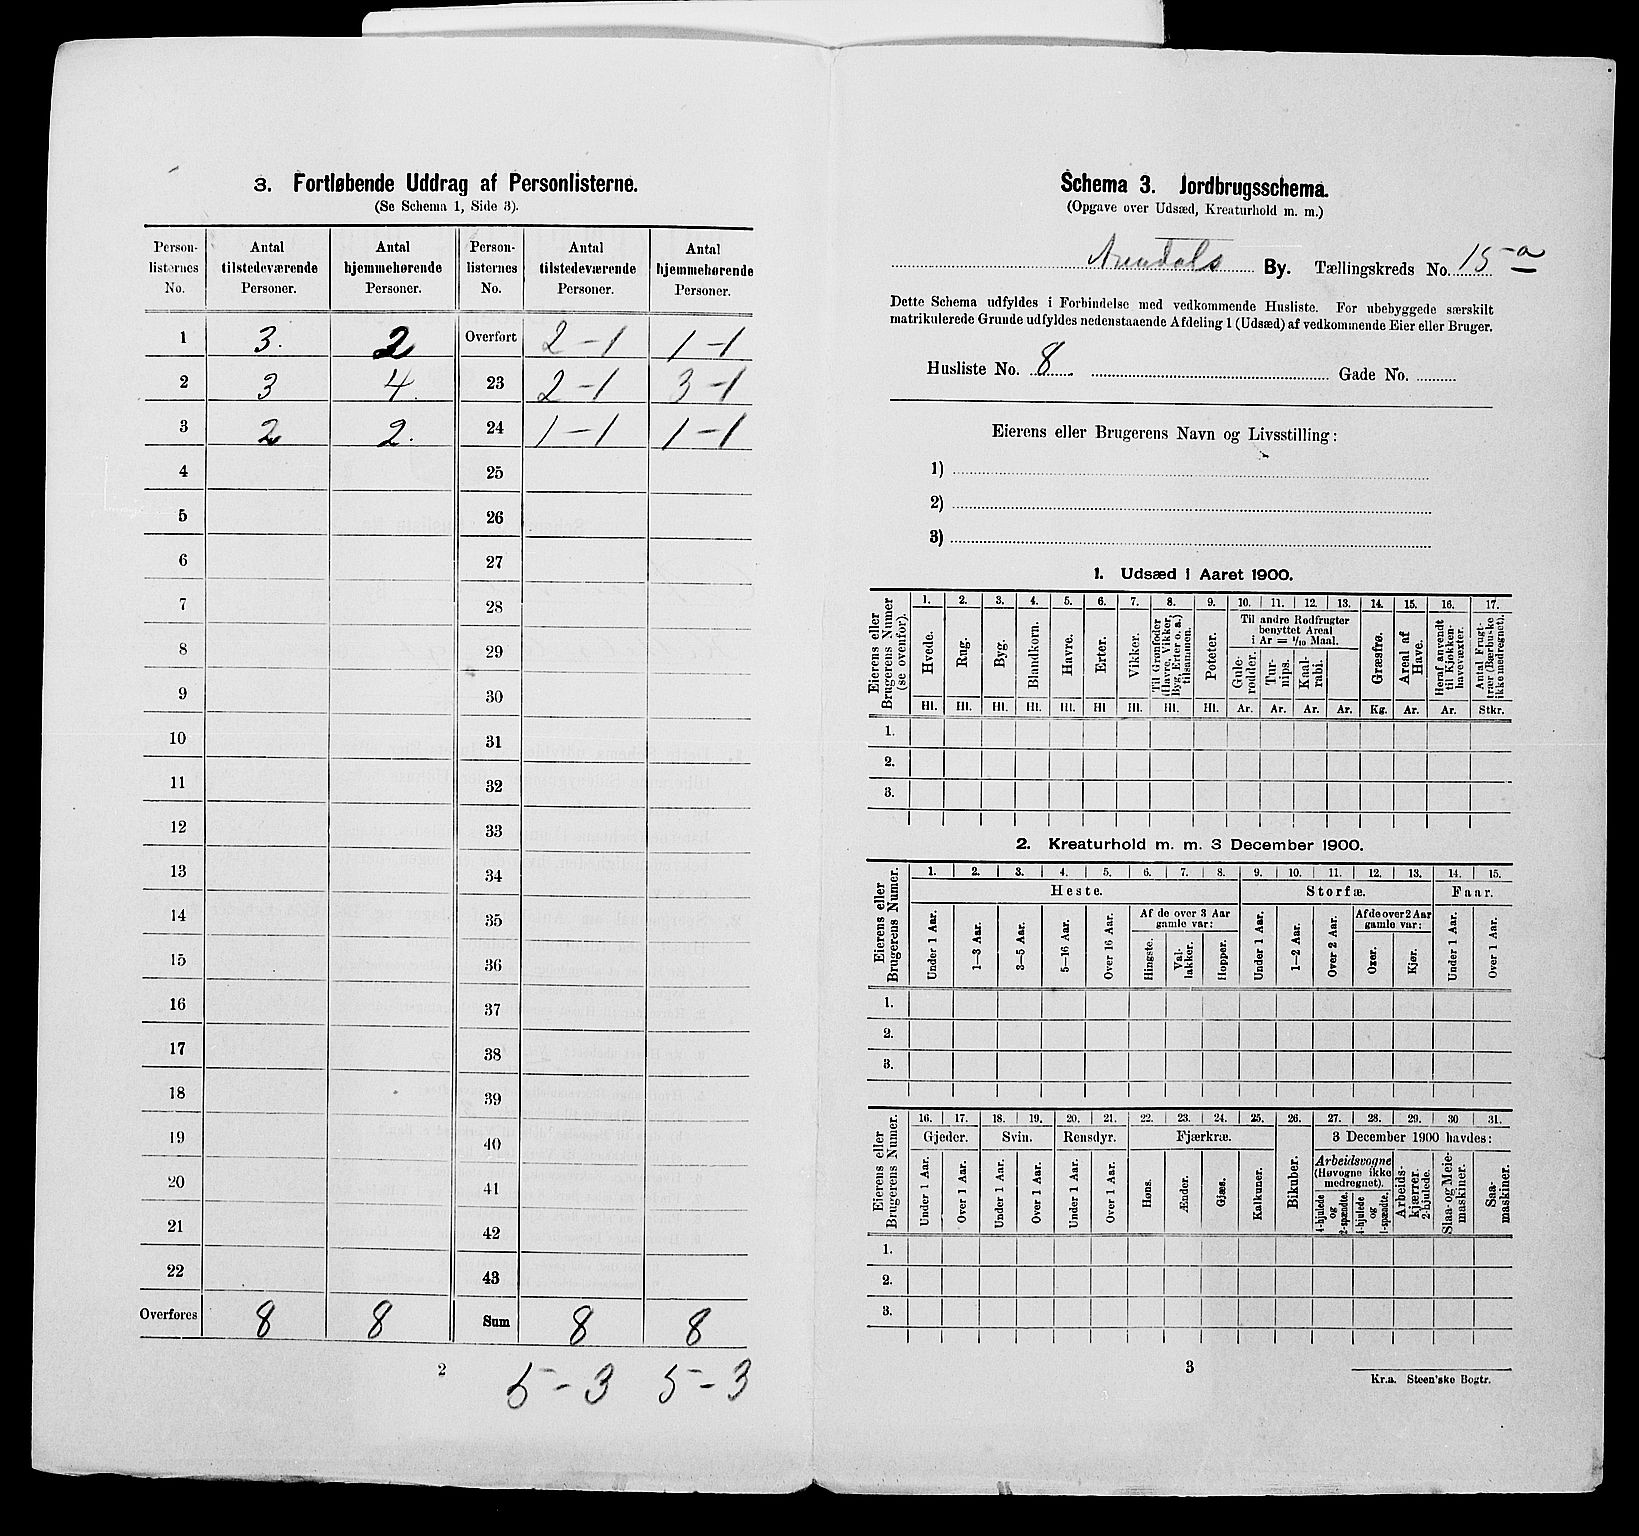 3. Fortløbende Uddrag af Personlisterne.
(Se Schema 1, Side 3).
Person-listernes No. | Antal tilstedeværende Personer. | Antal hjemmehørende Personer. | Person-listernes No. | Antal tilstedeværende Personer. | Antal hjemmehørende Personer.
1 | 3. | 2 | Overført | 2-1 | 1-1
2 | 3 | 4. | 23 | 2-1 | 3-1
3 | 2 | 2. | 24 | 1-1 | 1-1
4 | 25
5 | 26
6 | 27
7 | 28
8 | 29
9 | 30
10 | 31
11 | 32
12 | 33
13 | 34
14 | 35
15 | 36
16 | 37
17 | 38
18 | 39
19 | 40
20 | 41
21 | 42
22 | 43
Overføres | 8 | 8 | Sum | 8 | 8
2
5-3 5-3
Schema 3. Jordbrugsschema.
(Opgave over Udsæd, Kreaturhold m. m.)
Arendals By. Tællingskreds No. 15 a
Dette Schema udfyldes i Forbindelse med vedkommende Husliste. For ubebyggede særskilt
matrikulerede Grunde udfyldes nedenstaaende Afdeling 1 (Udsæd) af vedkommende Eier eller Bruger.
Husliste No. 8. Gade No.
Eierens eller Brugerens Navn og Livsstilling:
1)
2)
3)
1. Udsæd i Aaret 1900.
Eierens eller Brugerens Numer (se ovenfor).
1. | 2. | 3. | 4. | 5. | 6. | 7. | 8. | 9. | 10. | 11. | 12. | 13. | 14. | 15. | 16. | 17.
Til andre Rodfrugter benyttet Areal i Ar = 1/10 Maal.
Hvede. | Rug. | Byg. | Blandkorn. | Havre. | Erter. | Vikker. | Til Grønfoder (Havre, Vikker, Byg, Erter o. a.) tilsammen. | Poteter. | Gule-rødder. | Tur-nips. | Kaal-rabi. | Græsfrø. | Areal af Have. | Heraf anvendt til Kjøkken-havevæxter. | Antal Frugt-trær (Bærbuske ikke medregnet).
Hl. | Hl. | Hl. | Hl. | Hl. | Hl | Hl. | Hl. | Hl. | Ar. | Ar. | Ar. | Ar. | Kg. | Ar. | Ar. | Stkr.
1.
2.
3.
2. Kreaturhold m. m. 3 December 1900.
Eierens eller Brugerens Numer.
1. | 2. | 3. | 4. | 5. | 6. | 7. | 8. | 9. | 10. | 11. | 12. | 13. | 14. | 15.
Heste. | Storfæ. | Faar.
Af de over 3 Aar gamle var: | Af de over 2 Aar gamle var:
Under 1 Aar. | 1—3 Aar. | 3—5 Aar. | 5—16 Aar. | Over 16 Aar. | Hingste. | Val-lakker. | Hopper. | Under 1 Aar. | 1—2 Aar. | Over 2 Aar. | Oxer. | Kjør. | Under 1 Aar. | Over 1 Aar.
1.
2.
3.
Eierens eller Brugerens Numer.
16. | 17. | 18. | 19. | 20. | 21. | 22. | 23. | 24. | 25. | 26. | 27. | 28. | 29. | 30 | 31.
Gjeder. | Svin. | Rensdyr. | Fjærkræ. | 3 December 1900 havdes:
Arbeidsvogne (Høvogne ikke medregnet).
Under 1 Aar. | Over 1 Aar. | Under 1 Aar. | Over 1 Aar. | Under 1 Aar. | Over 1 Aar. | Høns. | Ænder. | Gjæs. | Kalkuner. | Bikuber. | 4-hjulede og 2-spændte. | 4-hjulede og 1-spændte. | Arbeids-kjærrer, 2-hjulede. | Slaa- og Meie-maskiner. | Saa-maskiner.
1.
2.
3.
3
Kr.a. Steen'ske Bogtr.